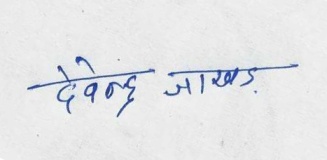 देवेन्द्र जाखड़